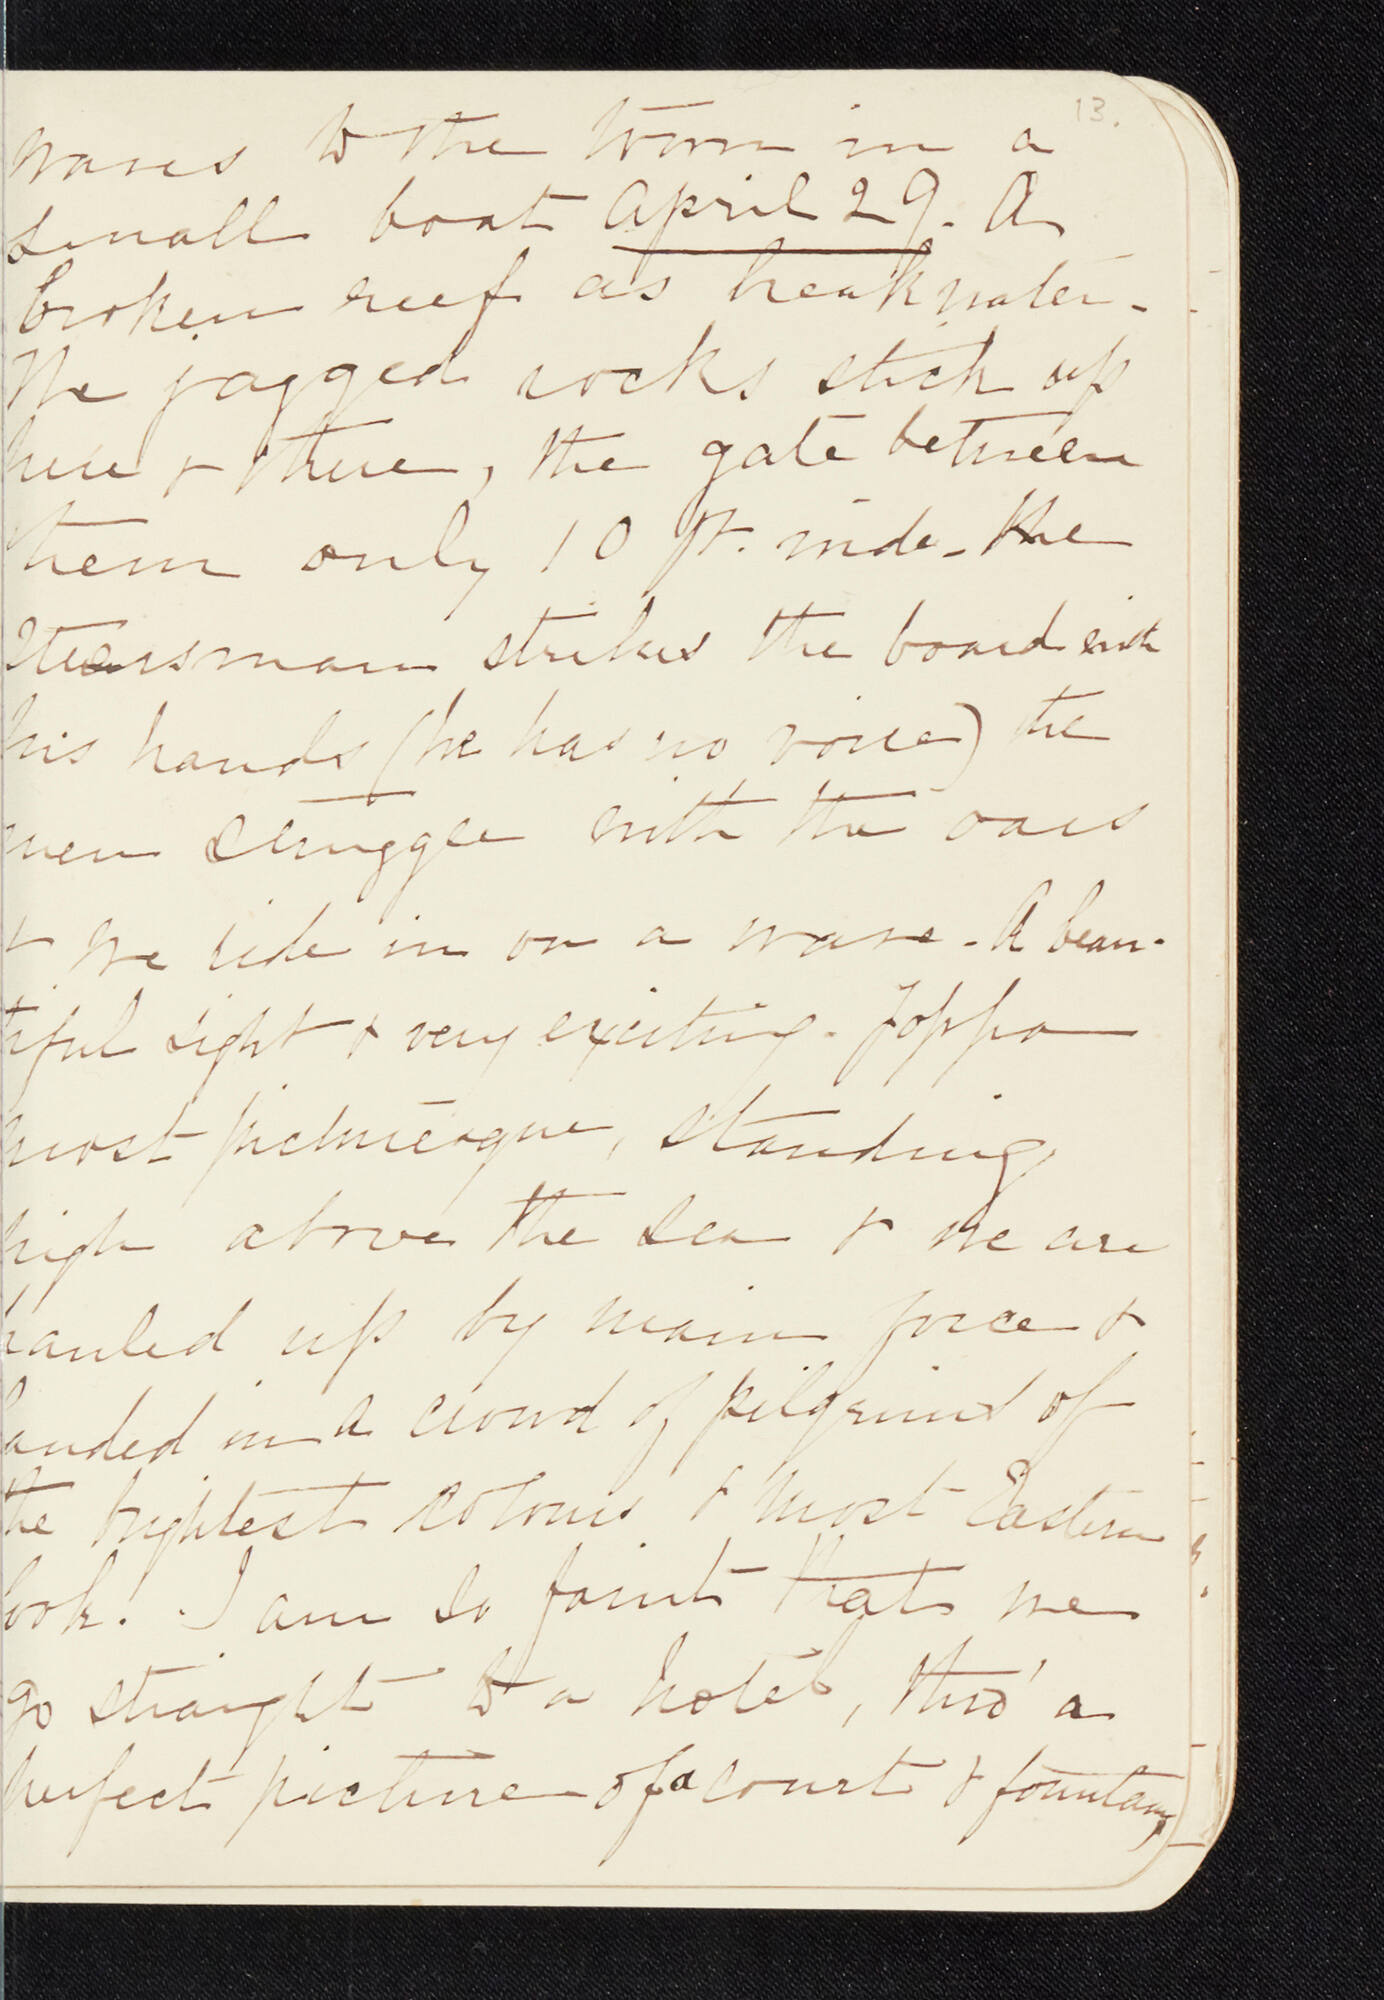 13.
waves to the town in a
small boat April 29. A
broken reef as breakwater.
The jagged rocks stick up
here & there, the gate between
them only 10 ft. wide. The
steersman strikes the board with
his hands (he has no voice) the
men struggle with the oars
& we ride in on a wave. A beau-
tiful sight & very exciting. Joppa
most picturesque, standing
high above the sea & we are
hauled up by main force &
landed in a crowd of pilgrims of
the brightest colours & most Eastern
look. I am so faint that we
go straight to a hotel, thro' a
perfect picture of a court & fountain,